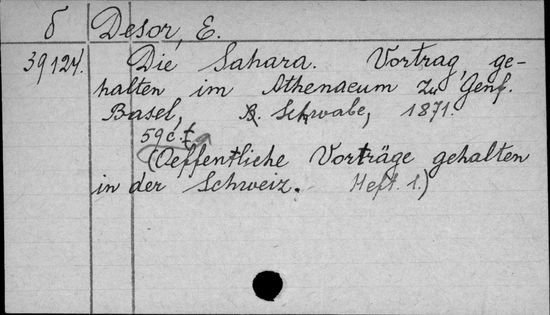 б Desor, E.
39124. Die Sahara. Vortrag, ge-
halten im Athenaeum zu Genf.
Basel, B. Schwabe, 1871.
59 c.
(Oeffentliche Vorträge gehalten
in der Schweiz. Heft. 1.)